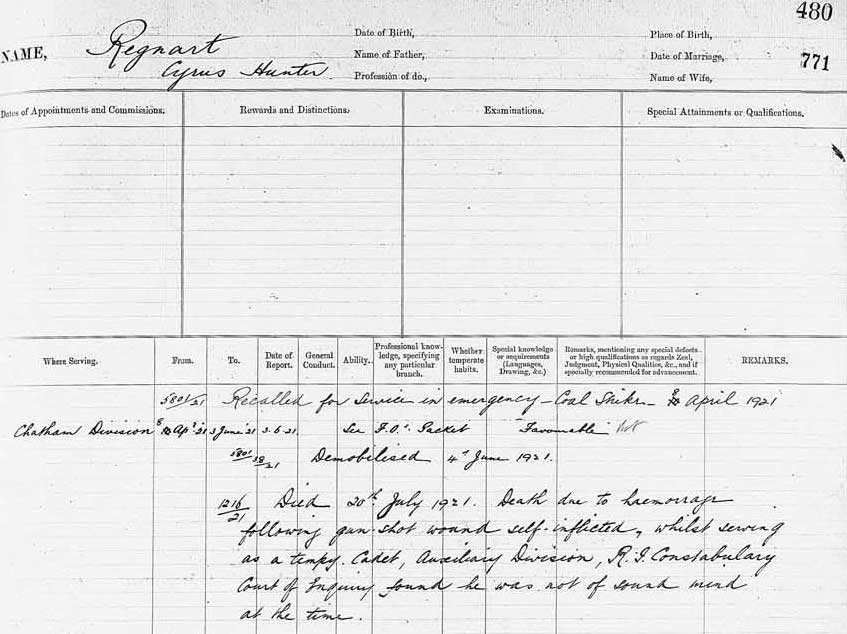 480
NAME, Regnart
Cyrus Hunter
Date of Birth,
Name of Father,
Profession of do.,
Place of Birth,
Date of Marriage,
Name of Wife,
771
Dates of Appointments and Commissions. Rewards and Distinctions. Examinations. Special Attainments or Qualifications.
Where Serving. From. To. Date of Report. General Conduct. Ability. Professional knowledge, specifying any particular branch. Whether temperate habits. Special knowledge or acquirements (Languages, Drawing, &c.) Remarks, mentioning any special defects or high qualifications as regards Zeal, Judgment, Physical Qualities, &c., and if specially recommended for advancement. REMARKS.
5801/21 Recalled for Service in emergency - Coal Strike - April 1921
Chatham Division Apl '21 3 June '21 3.6.21. See F.O's. Packet "Favourable"
5801/21 Demobilised 4th June 1921.
1216/21 Died 20th July 1921. Death due to haemorrage
following gun-shot wound self-inflicted, whilst serving
as a tempy. Cadet, Auxiliary Division, R.I. Constabulary
Court of Enquiry found he was not of sound mind
at the time.